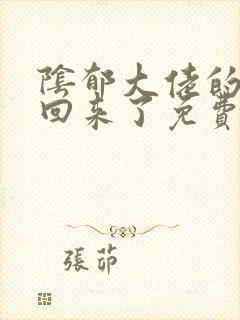 陰郁大佬的
回来了免費
張茆